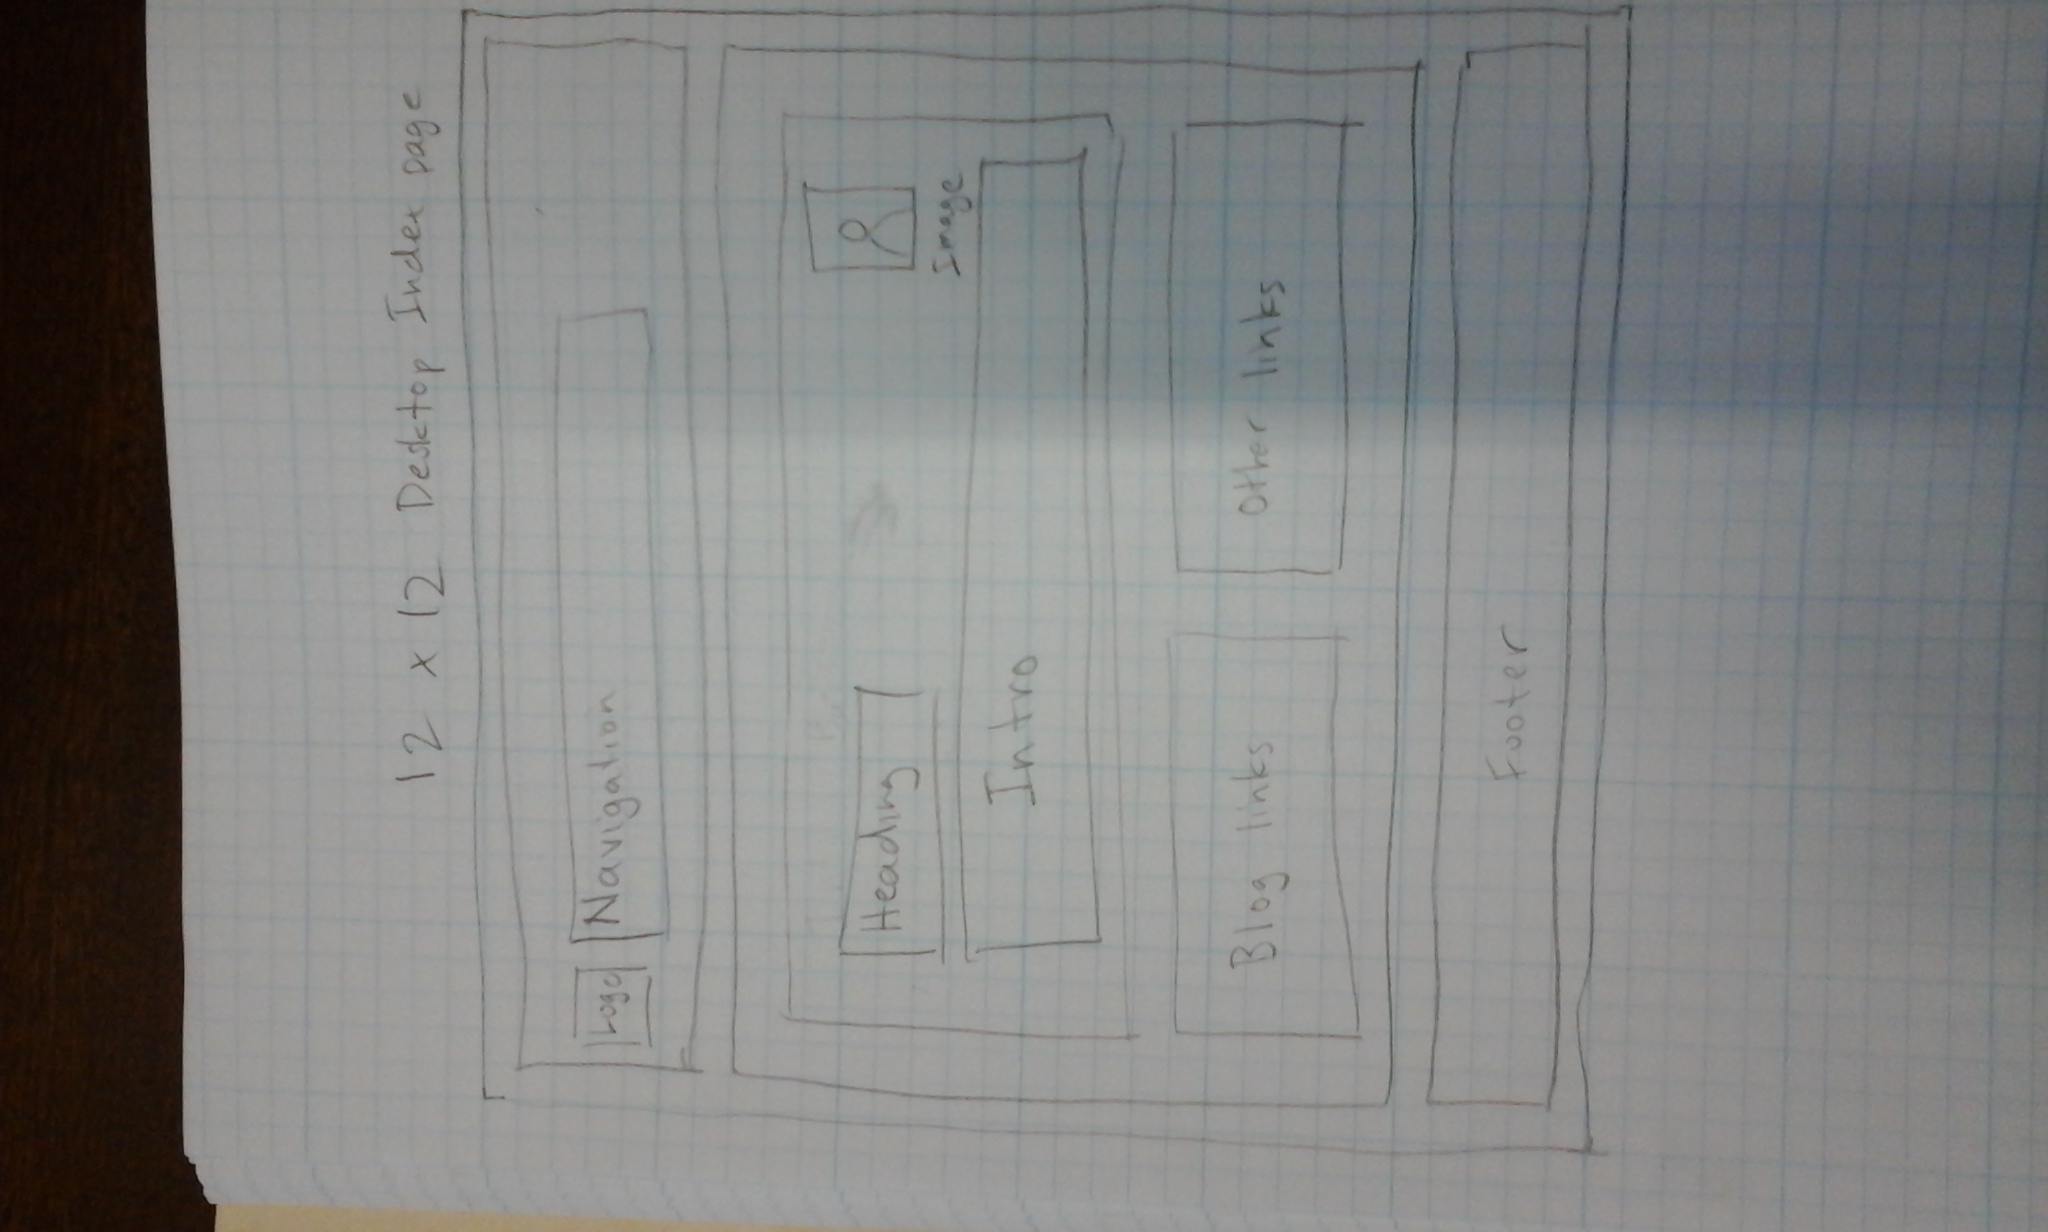 12 x 12 Desktop Index page
Logo Navigation
Heading
Image
Intro
Blog links Other links
Footer